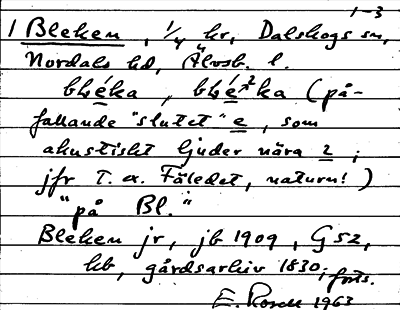 1-3
1 Bleken, 1/4 kr, Dalskogs sn,
Nordals hd, Älvsb. l.
(på-
fallande "slutet" e, som
akustiskt ljuder nära 2;
jfr T. ex. Fäledet, naturn!)
"på Bl."
Bleken jr, jb 1909, G52,
kb, gårdsarkiv 1830; forts.
E. Rosell 1963